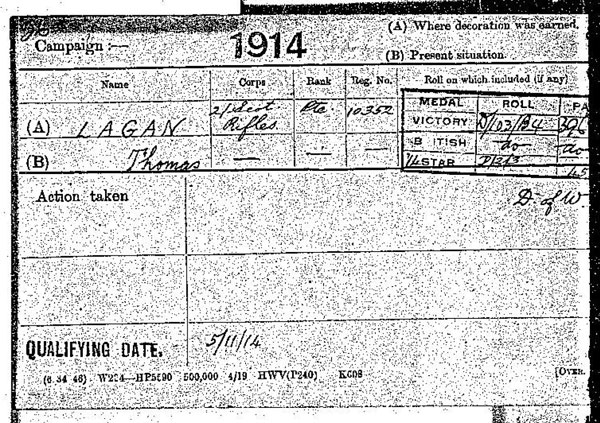 Campaign :— 1914 (A) Where decoration was earned.
(B) Present situation
Name Corps Rank Reg. No. Roll on which included (if any)
MEDAL ROLL PA
(A) LAGAN 2/Scot Rifles Pte 10352 VICTORY D/103/B4 396
B ITISH do do
(B) Thomas — — — 14 STAR D/2/3 45
Action taken D of W.
QUALIFYING DATE. 5/11/14
(6 34 46) W234—HP5590 500,000 4/19 HWV(P240) K608
[OVER.